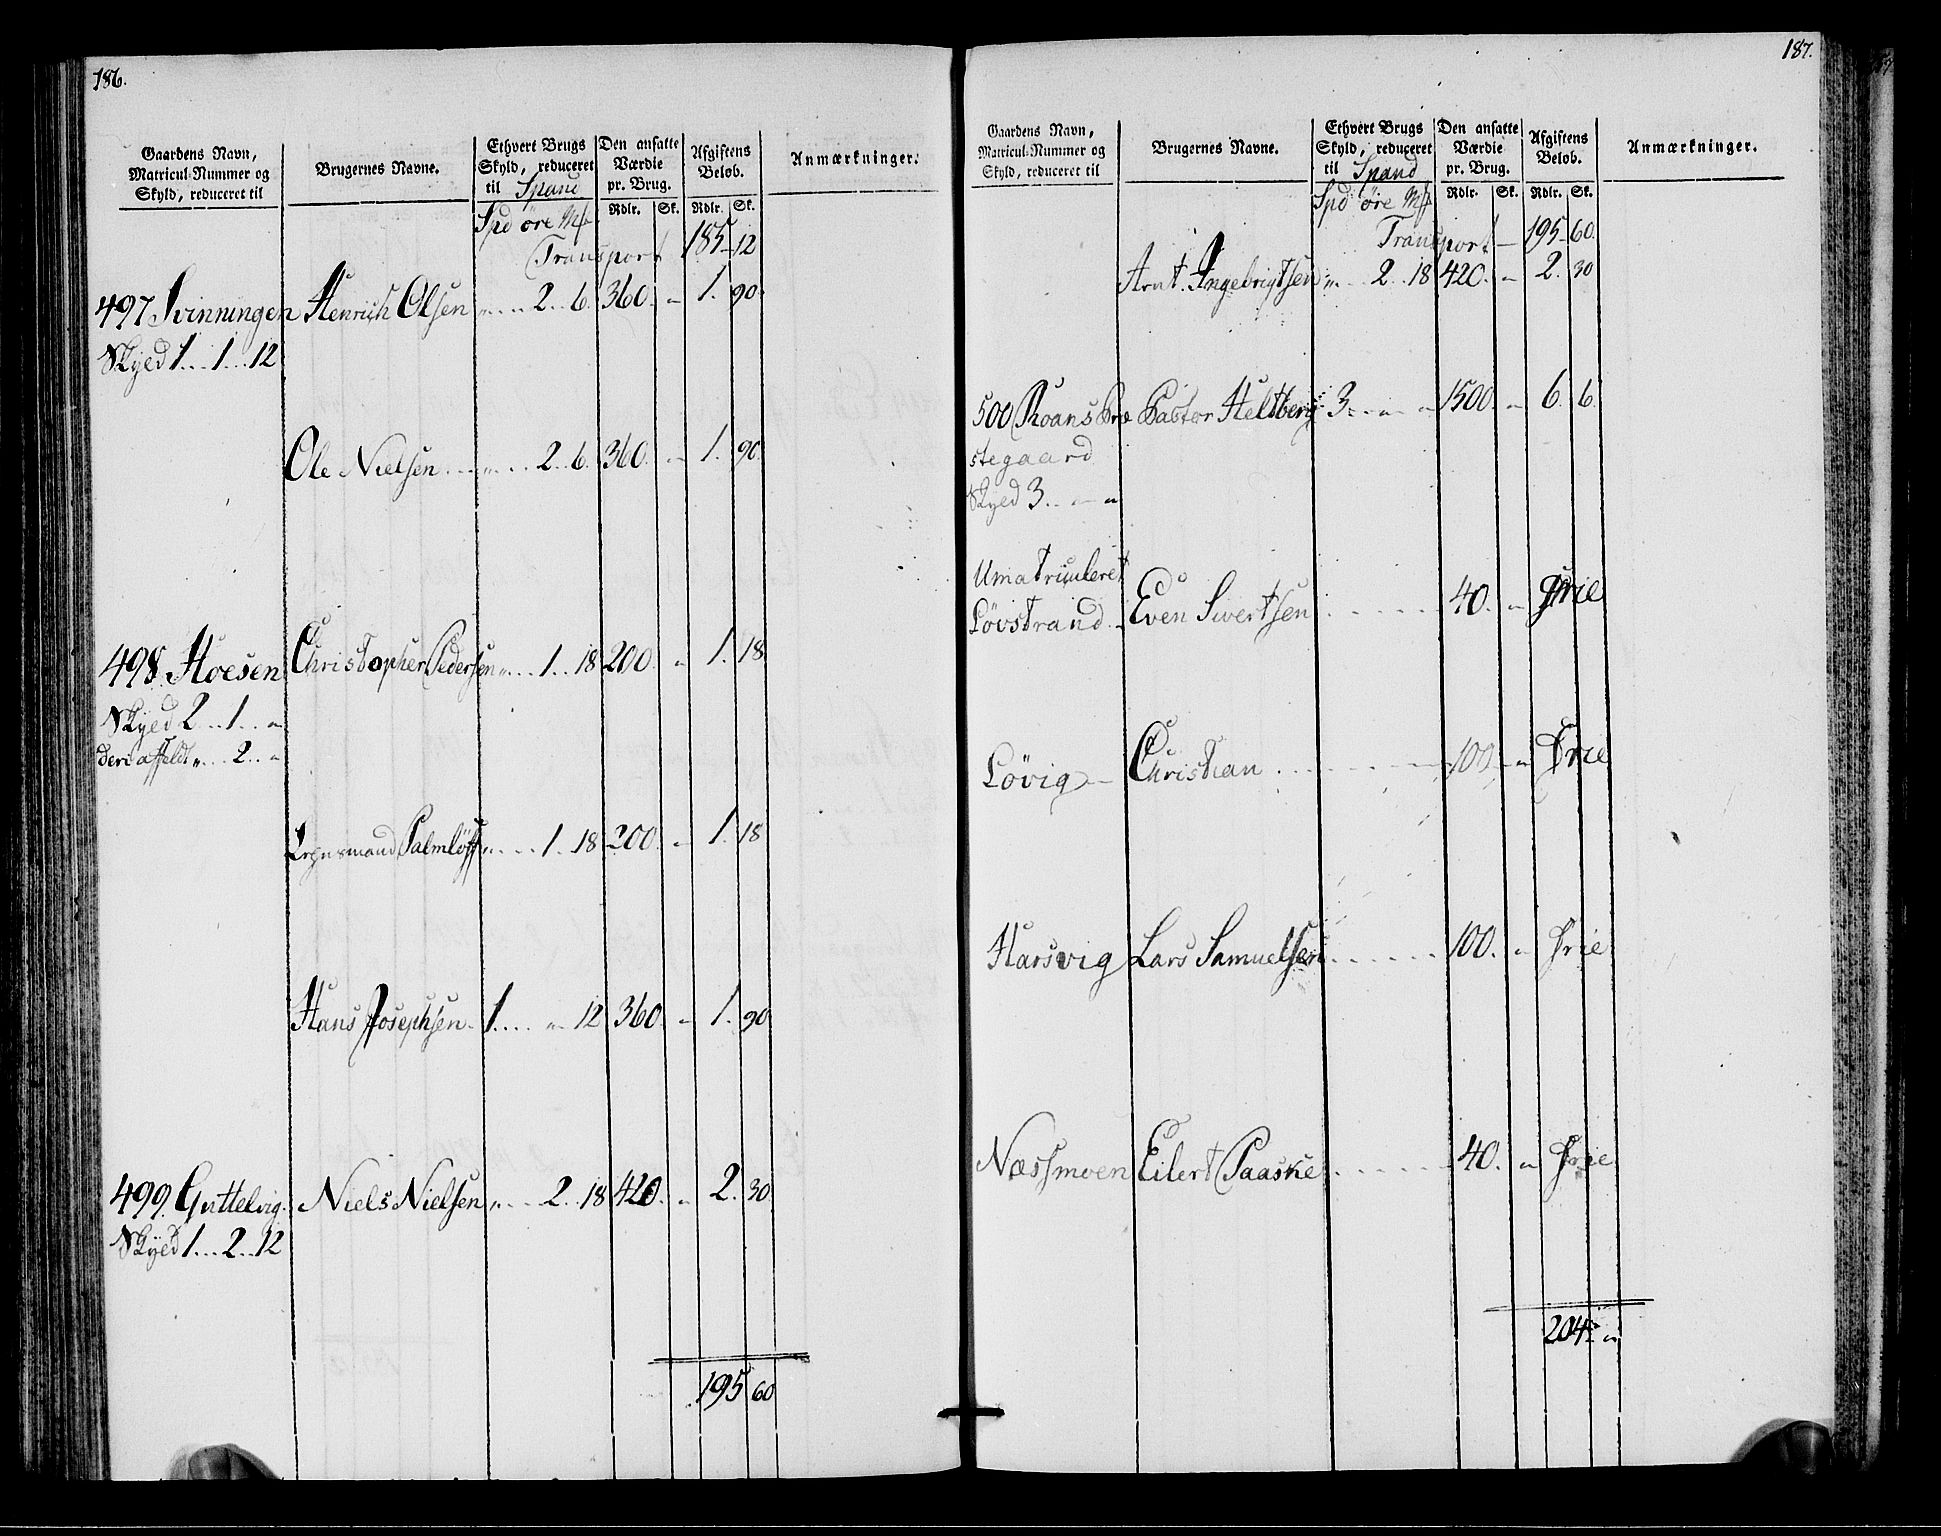 186.
Gaardens Navn, Matricul-Nummer og Skyld, reduceret til
Brugernes Navne.
Ethvert Brugs Skyld, reduceret til Spand
Den ansatte Værdie pr. Brug.
Afgiftens Beløb.
Anmærkninger.
Spd øre Mk Rdlr. Sk. Rdlr. Sk.
Transport 185 - 12
497 Svinningen Henrich Olsen „ 2 .. 6. 360. „ 1. 90.
Skyed 1 . . 1 . . 12
Ole Nielsen „ 2 .. 6. 360. „ 1. 90.
498. Hoesen Christopher Pedersen „ 1 .. 18 200. „ 1. 18
Skyed 2 . . 1 . . „
deri affeldt „ . . 2 . . „
Legnsmand Palmlöff „ 1 .. 18 200. „ 1. 18
Hans Josephsen 1 . . . „ 12 360. „ 1. 90
499. Guttelvig. Niels Nielsen „ 2 .. 18 420. „ 2. 30
Skyed 1 . . 2 . . 12
195 60
187.
Gaardens Navn, Matricul-Nummer og Skyld, reduceret til
Brugernes Navne.
Ethvert Brugs Skyld, reduceret til Spand
Den ansatte Værdie pr. Brug.
Afgiftens Beløb.
Anmærkninger.
Spd øre Mk Rdlr. Sk. Rdlr. Sk.
Transport - 195 - 60.
Arnt. Ingebrigtsen „ 2 .. 18 420. „ 2. 30
500 Roans Præ Pastor Heltberg 3 . . „ „ 1500. „ 6. 6.
stegaard
Skyed 3 . . „ „
Umatriculeret
Lövstrand. Even Sivertsen 40. „ Frie
Lövig Christian 100. „ Frie
Harsvig Lars Samuelsen 100. „ Frie
Næssmoen Eilert Paaske 40. „ Frie
204. „